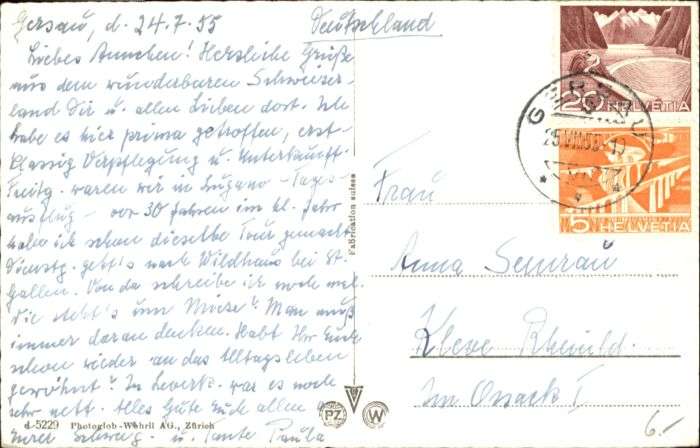 Gersau, d. 24.7.55
Deutschland
Liebes Annchen! Herzliche Grüße
aus dem wunderbaren Schweizer-
land Dir u. allen Lieben dort. Ich
habe es hier prima getroffen, erst-
klassig Verpflegung u. Unterkunft.
Freitg. waren wir in Lugano – Tages-
ausflug – vor 30 Jahren im kl. Jahr
habe ich schon dieselbe Tour gemacht
Dienstg. geht's nach Wildhaus bei St.
Gallen. Von da schreibe ich noch mal.
Wie steht's um Mieze? Man muß
immer daran denken. Habt Ihr Euch
schon wieder an das Alltagsleben
gewöhnt? In Leverk. war es noch
sehr nett. Alles Gute Euch allen
u. Tante Paula
d-5229 Photoglob-Wehrli AG., Zürich
Fabrication suisse
PZ
W
20 HELVETIA
GERSAU
25.VII.55
5 HELVETIA
Frau
Anna
Kleve Rheinld.
Im
6.–